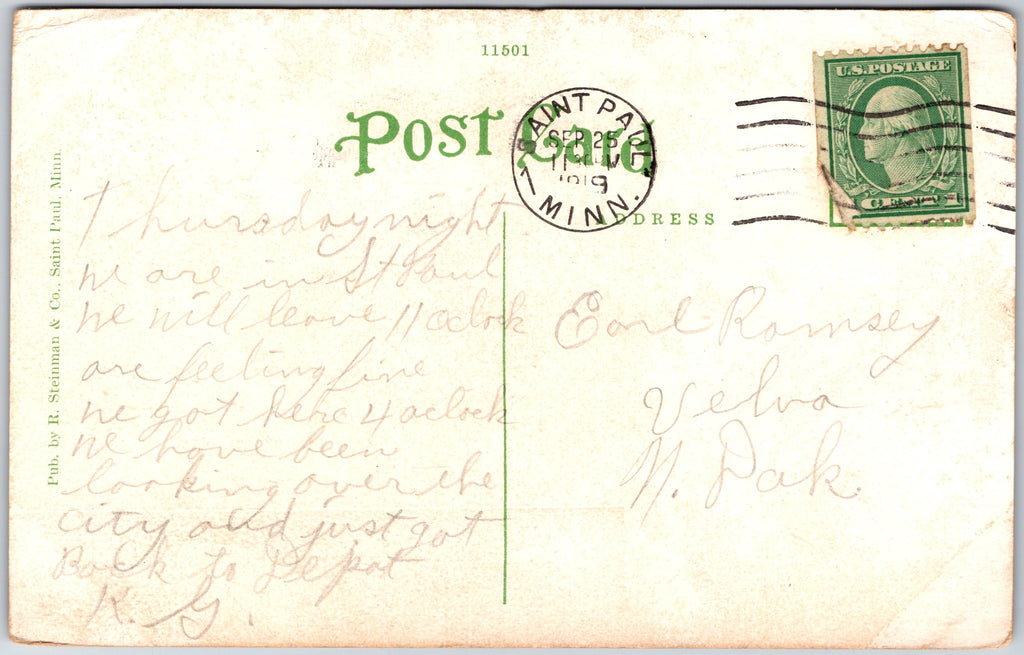 11501
POST CARD
SAINT PAUL
SEP 25
1919
MINN.
U.S. POSTAGE
ADDRESS
Pub. by R. Steinman & Co., Saint Paul, Minn.
Thursday night
we are in St Paul
we will leave 11 oclock
are feeling fine
we got here 4 oclock
we have been
looking over the
city and just got
Back to Depot
K. G.
Earl Ramsey
Velva
N. Dak.